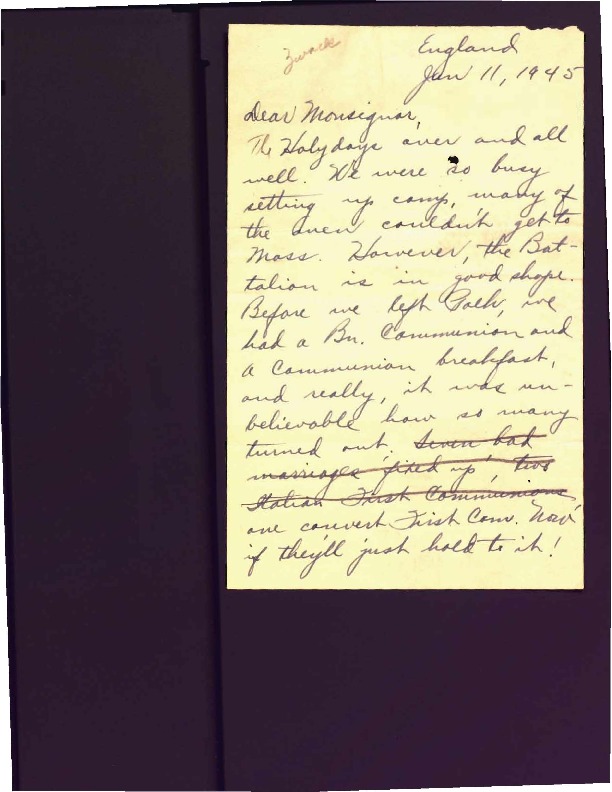 Zwack
England
Jan 11, 1945
Dear Monsignor,
The Holydays over and all
well. We were so busy
setting up camp, many of
the men couldn't get to
Mass. However, the Bat-
talion is in good shape.
Before we left Polk, we
had a Bn. Communion and
a Communion breakfast,
and really, it was un-
believable how so many
turned out. Seven bad
marriages 'fixed up', two
Italian First Communions
one convert First Com. Now
if they'll just hold to it!